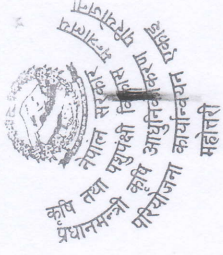 नेपाल सरकार
कृषि तथा पशुपंक्षी विकास मन्त्रालय
प्रधानमन्त्री कृषि आधुनिकिकरण परियोजना
परियोजना कार्यान्वयन एकाइ
महोत्तरी